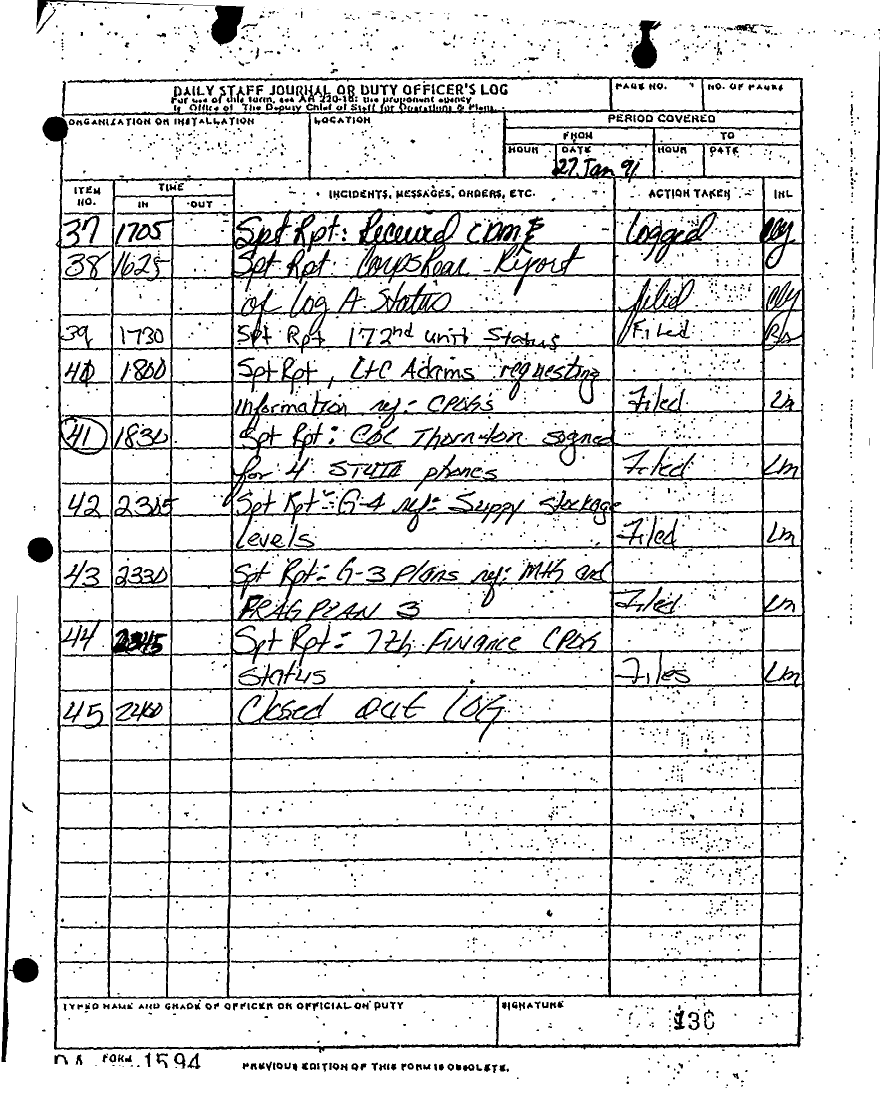 DAILY STAFF JOURNAL OR DUTY OFFICER'S LOG
For use of this form, see AR 220-15; the proponent agency
is Office of The Deputy Chief of Staff for Operations & Plans.
PAGE NO.
NO. OF PAGES
ORGANIZATION OR INSTALLATION
LOCATION
PERIOD COVERED
FROM
TO
HOUR
DATE
HOUR
DATE
27 Jan 91
ITEM NO.
TIME
IN
OUT
INCIDENTS, MESSAGES, ORDERS, ETC.
ACTION TAKEN
INL
37 1705 Spt Rpt: Received Logged
38 1625 Spt Rpt Corps Rear Report
of Log A Status filed
39 1730 Spt Rpt 172nd unit Status Filed
40 1800 Spt Rpt, LTC Adams requesting
information ref: Filed Lm
41 1830 Spt Rpt: COL Thornton signed
for 4 phones Filed Lm
42 Spt Rpt: G-4 ref: Suppy stockage
levels Filed Lm
43 2330 Spt Rpt: G-3 Plans ref: and
FRAG PLAN 3 Filed Lm
44 2345 Spt Rpt: 7th Finance
Status Files Lm
45 2400 Closed out LOG
TYPED NAME AND GRADE OF OFFICER OR OFFICIAL ON DUTY
SIGNATURE
DA FORM 1594
PREVIOUS EDITION OF THIS FORM IS OBSOLETE.